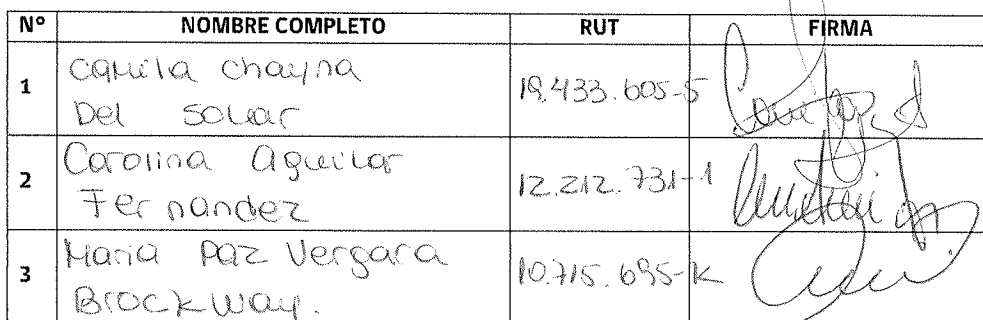 N° NOMBRE COMPLETO RUT FIRMA
1 Camila Chayna
Del Solar 19.433.605-5
2 Carolina Aguilar
Fernandez 12.212.731-1
3 Maria Paz Vergara
Brockway. 10.715.695-K